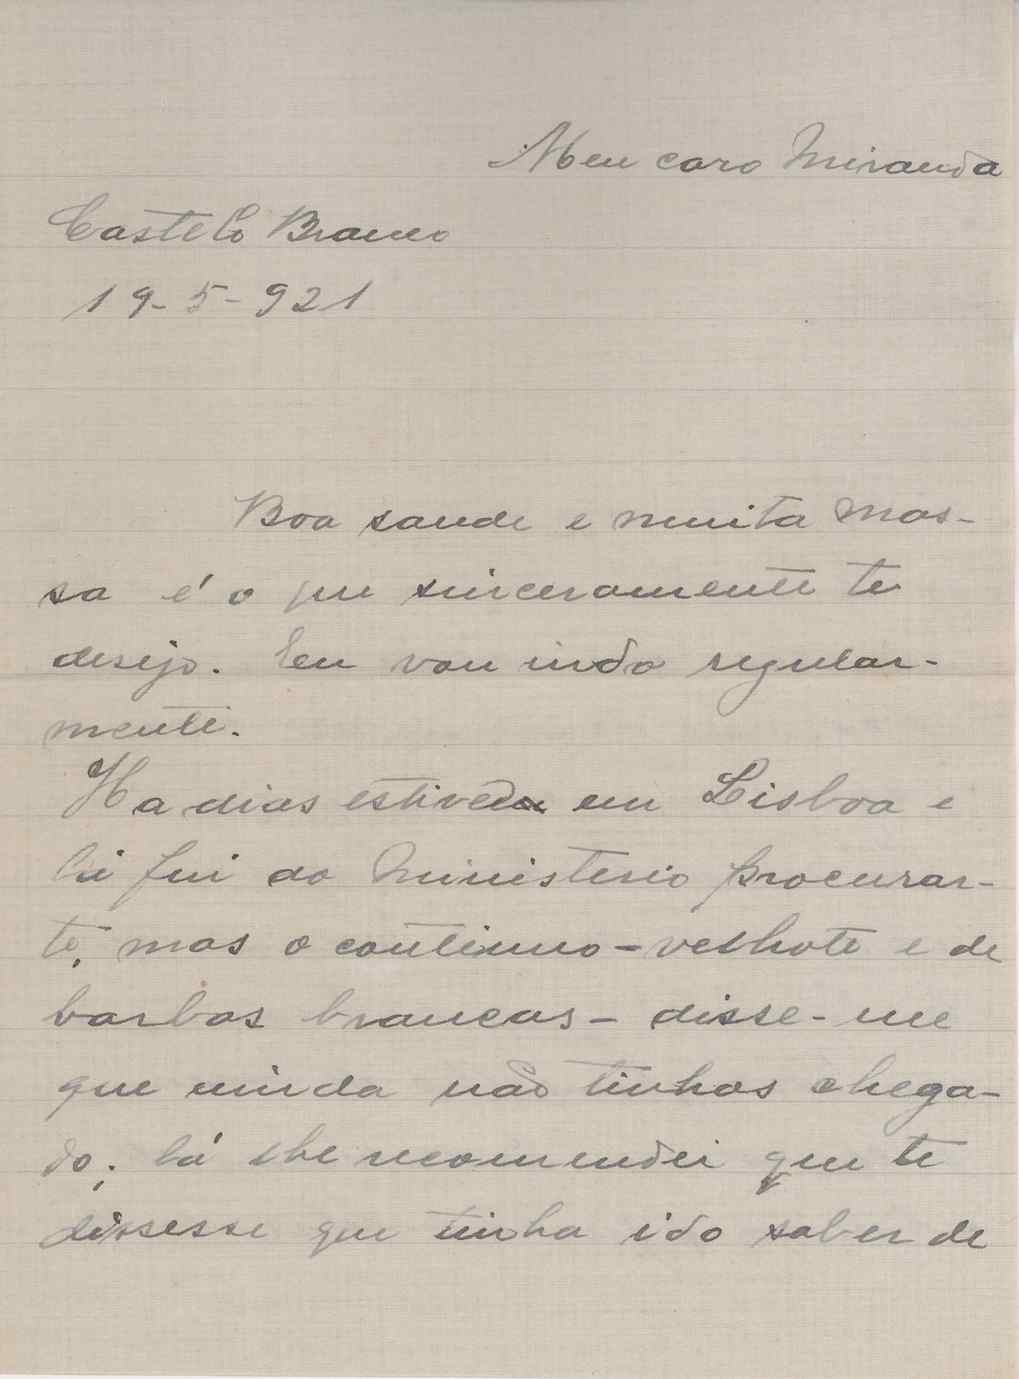 Meu caro Miranda
Castelo Branco
19-5-921
Boa saude e muita mas-
sa é o que sinceramente te
desejo. Eu vou indo regular-
mente.
Ha dias estive em Lisboa e
lá fui ao Ministerio procurar-
te, mas o continuo - velhote e de
barbas brancas - disse-me
que ainda não tinhas chega-
do; lá lhe recomendei que te
dissesse que tinha ido saber de